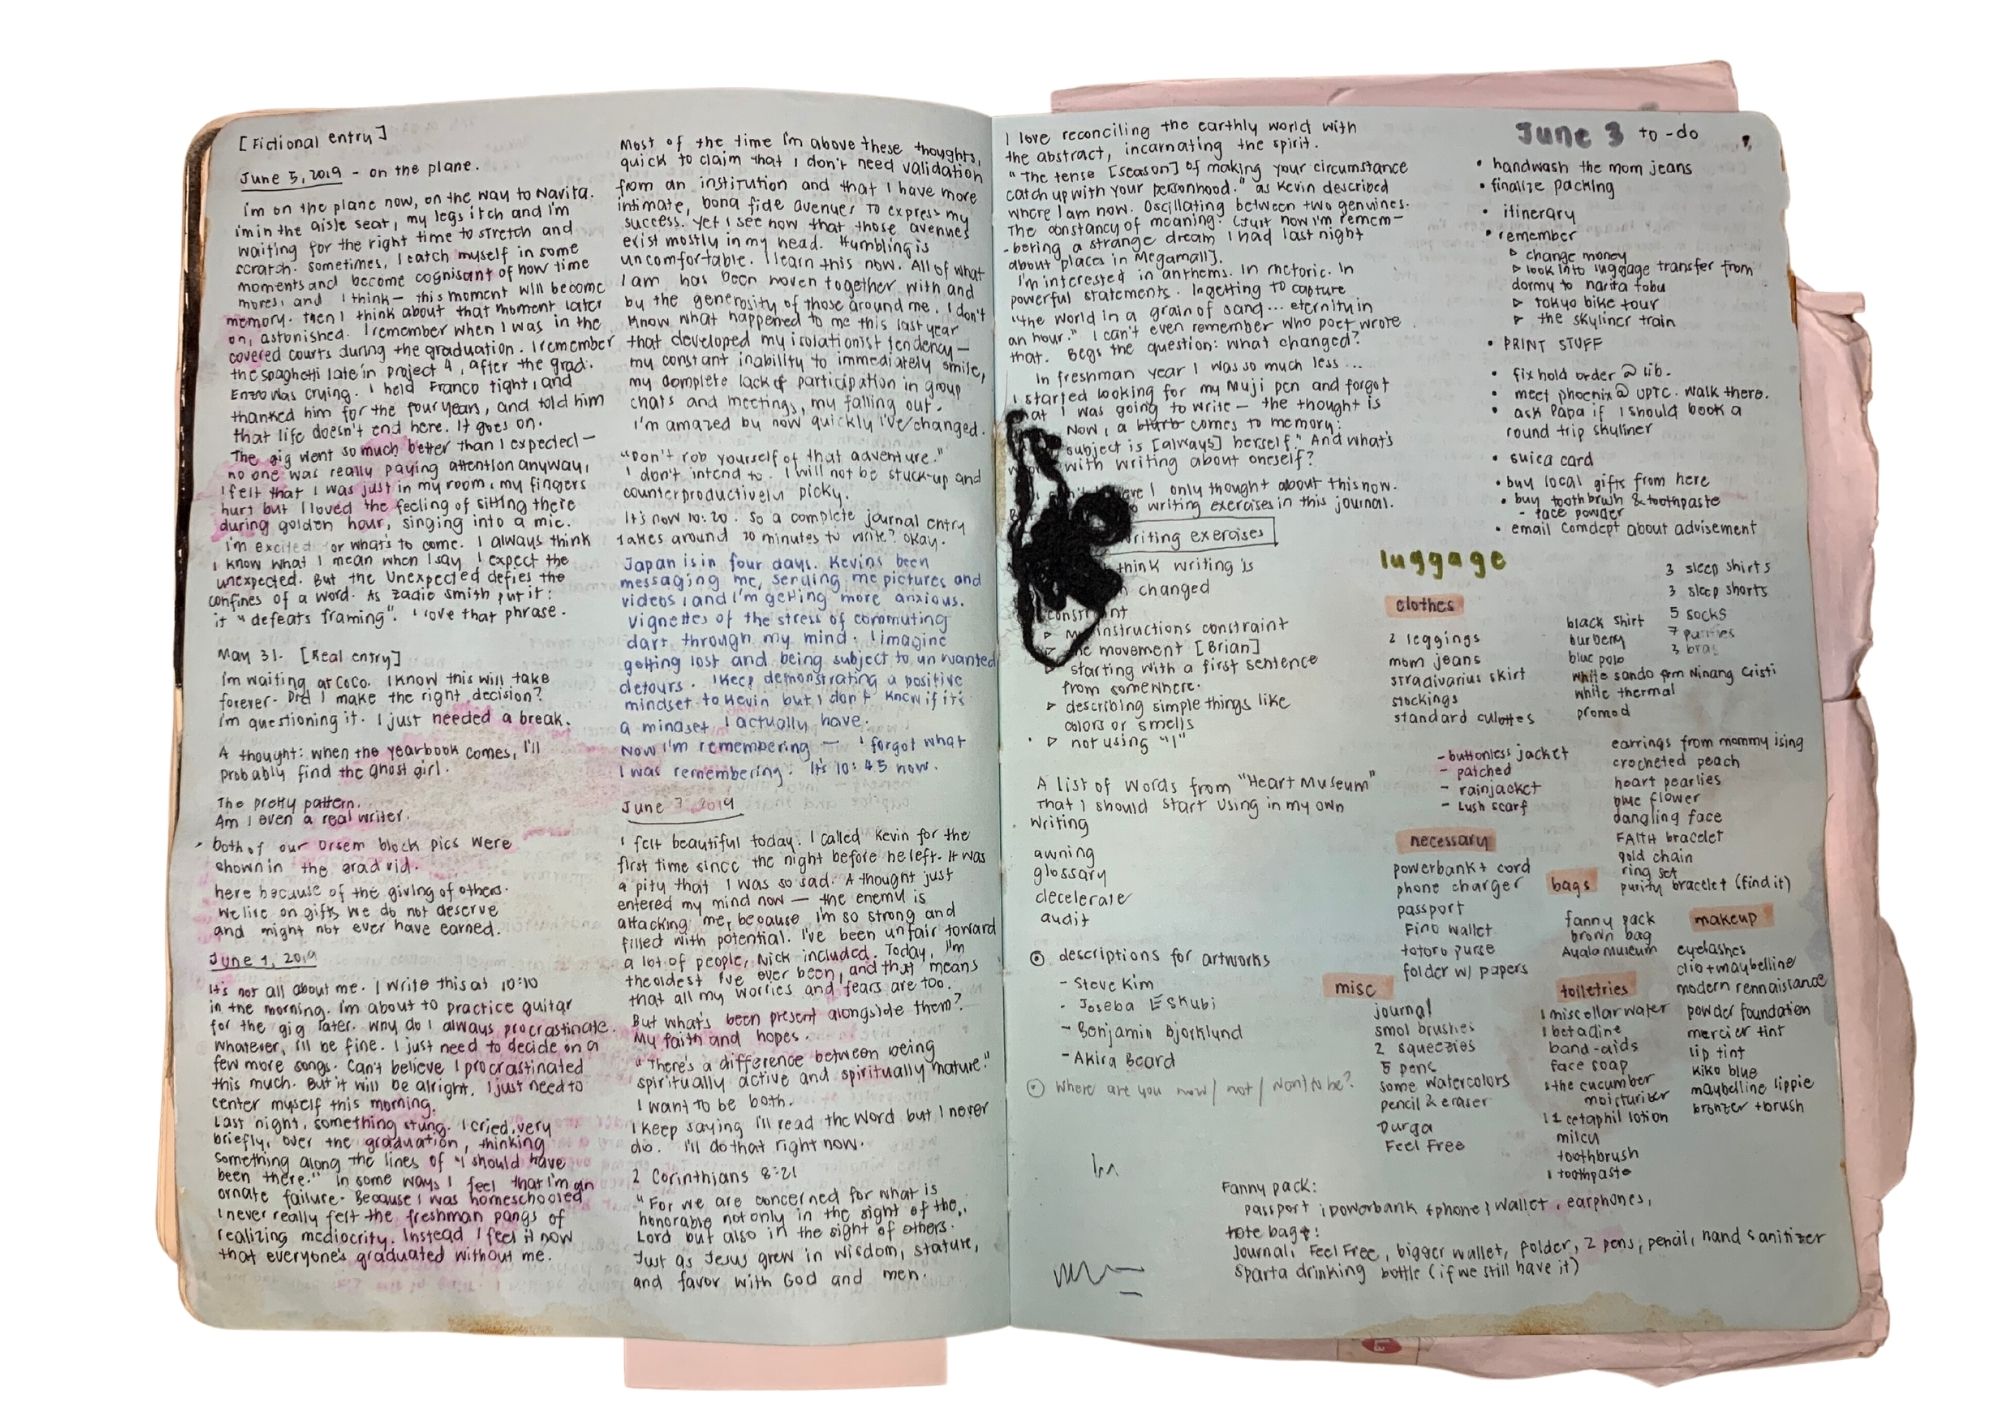 [Fictional entry]
June 5, 2019 - on the plane.
I'm on the plane now, on the way to Navita.
I'm in the aisle seat, my legs itch and I'm
waiting for the right time to stretch and
scratch. Sometimes, I catch myself in some
moments and become cognisant of how time
moves, and I think — this moment will become
memory. Then I think about that moment later
on, astonished. I remember when I was in the
covered courts during the graduation. I remember
the spaghetti late in Project 4, after the grad.
Enzo was crying. I held Franco tight, and
thanked him for the four years, and told him
that life doesn't end here. It goes on.
The gig went so much better than I expected —
no one was really paying attention anyway,
I felt that I was just in my room, my fingers
hurt but I loved the feeling of sitting there
during golden hour, singing into a mic.
I'm excited for what's to come. I always think
I know what I mean when I say I expect the
unexpected. But the Unexpected defies the
confines of a word. As Zadie Smith put it:
it "defeats framing". I love that phrase.
May 31. [Real entry]
I'm waiting at CoCo. I know this will take
forever. Did I make the right decision?
I'm questioning it. I just needed a break.
A thought: when the yearbook comes, I'll
probably find the ghost girl.
The pretty pattern.
Am I even a real writer.
both of our orsem block pics were
shown in the grad vid.
here because of the giving of others.
we live on gifts we do not deserve
and might not ever have earned.
June 1, 2019
It's not all about me. I write this at 10:10
in the morning. I'm about to practice guitar
for the gig later. Why do I always procrastinate.
Whatever, I'll be fine. I just need to decide on a
few more songs. Can't believe I procrastinated
this much. But it will be alright. I just need to
center myself this morning.
Last night, something stung. I cried, very
briefly, over the graduation, thinking
something along the lines of "I should have
been there." In some ways I feel that I'm an
ornate failure. Because I was homeschooled
I never really felt the freshman pangs of
realizing mediocrity. Instead I feel it now
that everyone's graduated without me.
Most of the time I'm above these thoughts,
quick to claim that I don't need validation
from an institution and that I have more
intimate, bona fide avenues to express my
success. Yet I see now that those avenues
exist mostly in my head. Humbling is
uncomfortable. I learn this now. All of what
I am has been woven together with and
by the generosity of those around me. I don't
know what happened to me this last year
that developed my isolationist tendency —
my constant inability to immediately smile,
my complete lack of participation in group
chats and meetings, my falling out.
I'm amazed by how quickly I've changed.
"Don't rob yourself of that adventure."
I don't intend to. I will not be stuck-up and
counterproductively picky.
It's now 10:20. So a complete journal entry
takes around 10 minutes to write? Okay.
Japan is in four days. Kevin's been
messaging me, sending me pictures and
videos, and I'm getting more anxious.
Vignettes of the stress of commuting
dart through my mind. I imagine
getting lost and being subject to unwanted
detours. I keep demonstrating a positive
mindset to Kevin but I don't know if it's
a mindset I actually have.
Now I'm remembering — I forgot what
I was remembering. It's 10:45 now.
June 3, 2019
I felt beautiful today. I called Kevin for the
first time since the night before he left. It was
a pity that I was so sad. A thought just
entered my mind now — the enemy is
attacking me, because I'm so strong and
filled with potential. I've been unfair toward
a lot of people, Nick included. Today, I'm
the oldest I've ever been, and that means
that all my worries and fears are too.
But what's been present alongside them?
My faith and hopes.
"There's a difference between being
spiritually active and spiritually mature."
I want to be both.
I keep saying I'll read the Word but I never
do. I'll do that right now.
2 Corinthians 8:21
"For we are concerned for what is
honorable not only in the sight of the
Lord but also in the sight of others."
Just as Jesus grew in wisdom, stature,
and favor with God and men.
I love reconciling the earthly world with
the abstract, incarnating the spirit.
"The tense [season] of making your circumstance
catch up with your personhood." as Kevin described
where I am now. Oscillating between two genuines.
The constancy of meaning. (Just now I'm remem-
-bering a strange dream I had last night
about places in Megamall].
I'm interested in anthems. In rhetoric. In
powerful statements. In getting to capture
"the world in a grain of sand... eternity in
an hour." I can't even remember who poet wrote
that. Begs the question: what changed?
In freshman year I was so much less...
I started looking for my Muji pen and forgot
what I was going to write — the thought is
Now, a blurb comes to memory:
subject is [always] herself." And what's
with writing about oneself?
I only thought about this now.
writing exercises in this journal.
writing exercises
think writing is
changed
constraint
▹ instructions constraint
▹ movement [Brian]
▹ starting with a first sentence
from somewhere.
▹ describing simple things like
colors or smells
▹ not using "I"
A list of words from "Heart Museum"
that I should start using in my own
writing
awning
glossary
decelerate
audit
descriptions for artworks
- Steve Kim
- Joseba Eskubi
- Benjamin Bjorklund
- Akira Beard
where are you now / not / want to be?
June 3 to-do
• handwash the mom jeans
• finalize packing
• itinerary
• remember
▹ change money
▹ look into luggage transfer from
dormy to narita tobu
▹ tokyo bike tour
▹ the skyliner train
• PRINT STUFF
• fix hold order @ lib.
• meet phoenix @ UPTC. walk there.
• ask Papa if I should book a
round trip skyliner
• suica card
• buy local gifts from here
• buy toothbrush & toothpaste
- face powder
• email comdept about advisement
luggage
clothes
2 leggings
mom jeans
stradivarius skirt
stockings
standard culottes
black shirt
burberry
blue polo
white sando frm Ninang Cristi
white thermal
promod
3 sleep shirts
3 sleep shorts
5 socks
7 panties
3 bras
- buttonless jacket
- patched
- rainjacket
- Lush scarf
earrings from mommy ising
crocheted peach
heart pearlies
blue flower
dangling face
FAITH bracelet
gold chain
ring set
purity bracelet (find it)
necessary
powerbank + cord
phone charger
passport
Fino wallet
totoro purse
folder w/ papers
bags
fanny pack
brown bag
Ayala Museum
makeup
eyelashes
clio + maybelline
modern rennaistance
powder foundation
mercier tint
lip tint
kiko blue
maybelline lippie
bronzer + brush
misc
journal
smol brushes
2 squeezies
5 pens
some watercolors
pencil & eraser
Durga
Feel Free
toiletries
1 miscellar water
1 betadine
band-aids
face soap
the cucumber
moisturizer
1 cetaphil lotion
milcu
toothbrush
1 toothpaste
Fanny pack:
passport, powerbank + phone, wallet, earphones,
tote bag:
journal, Feel Free, bigger wallet, folder, 2 pens, pencil, hand sanitizer
Sparta drinking bottle (if we still have it)